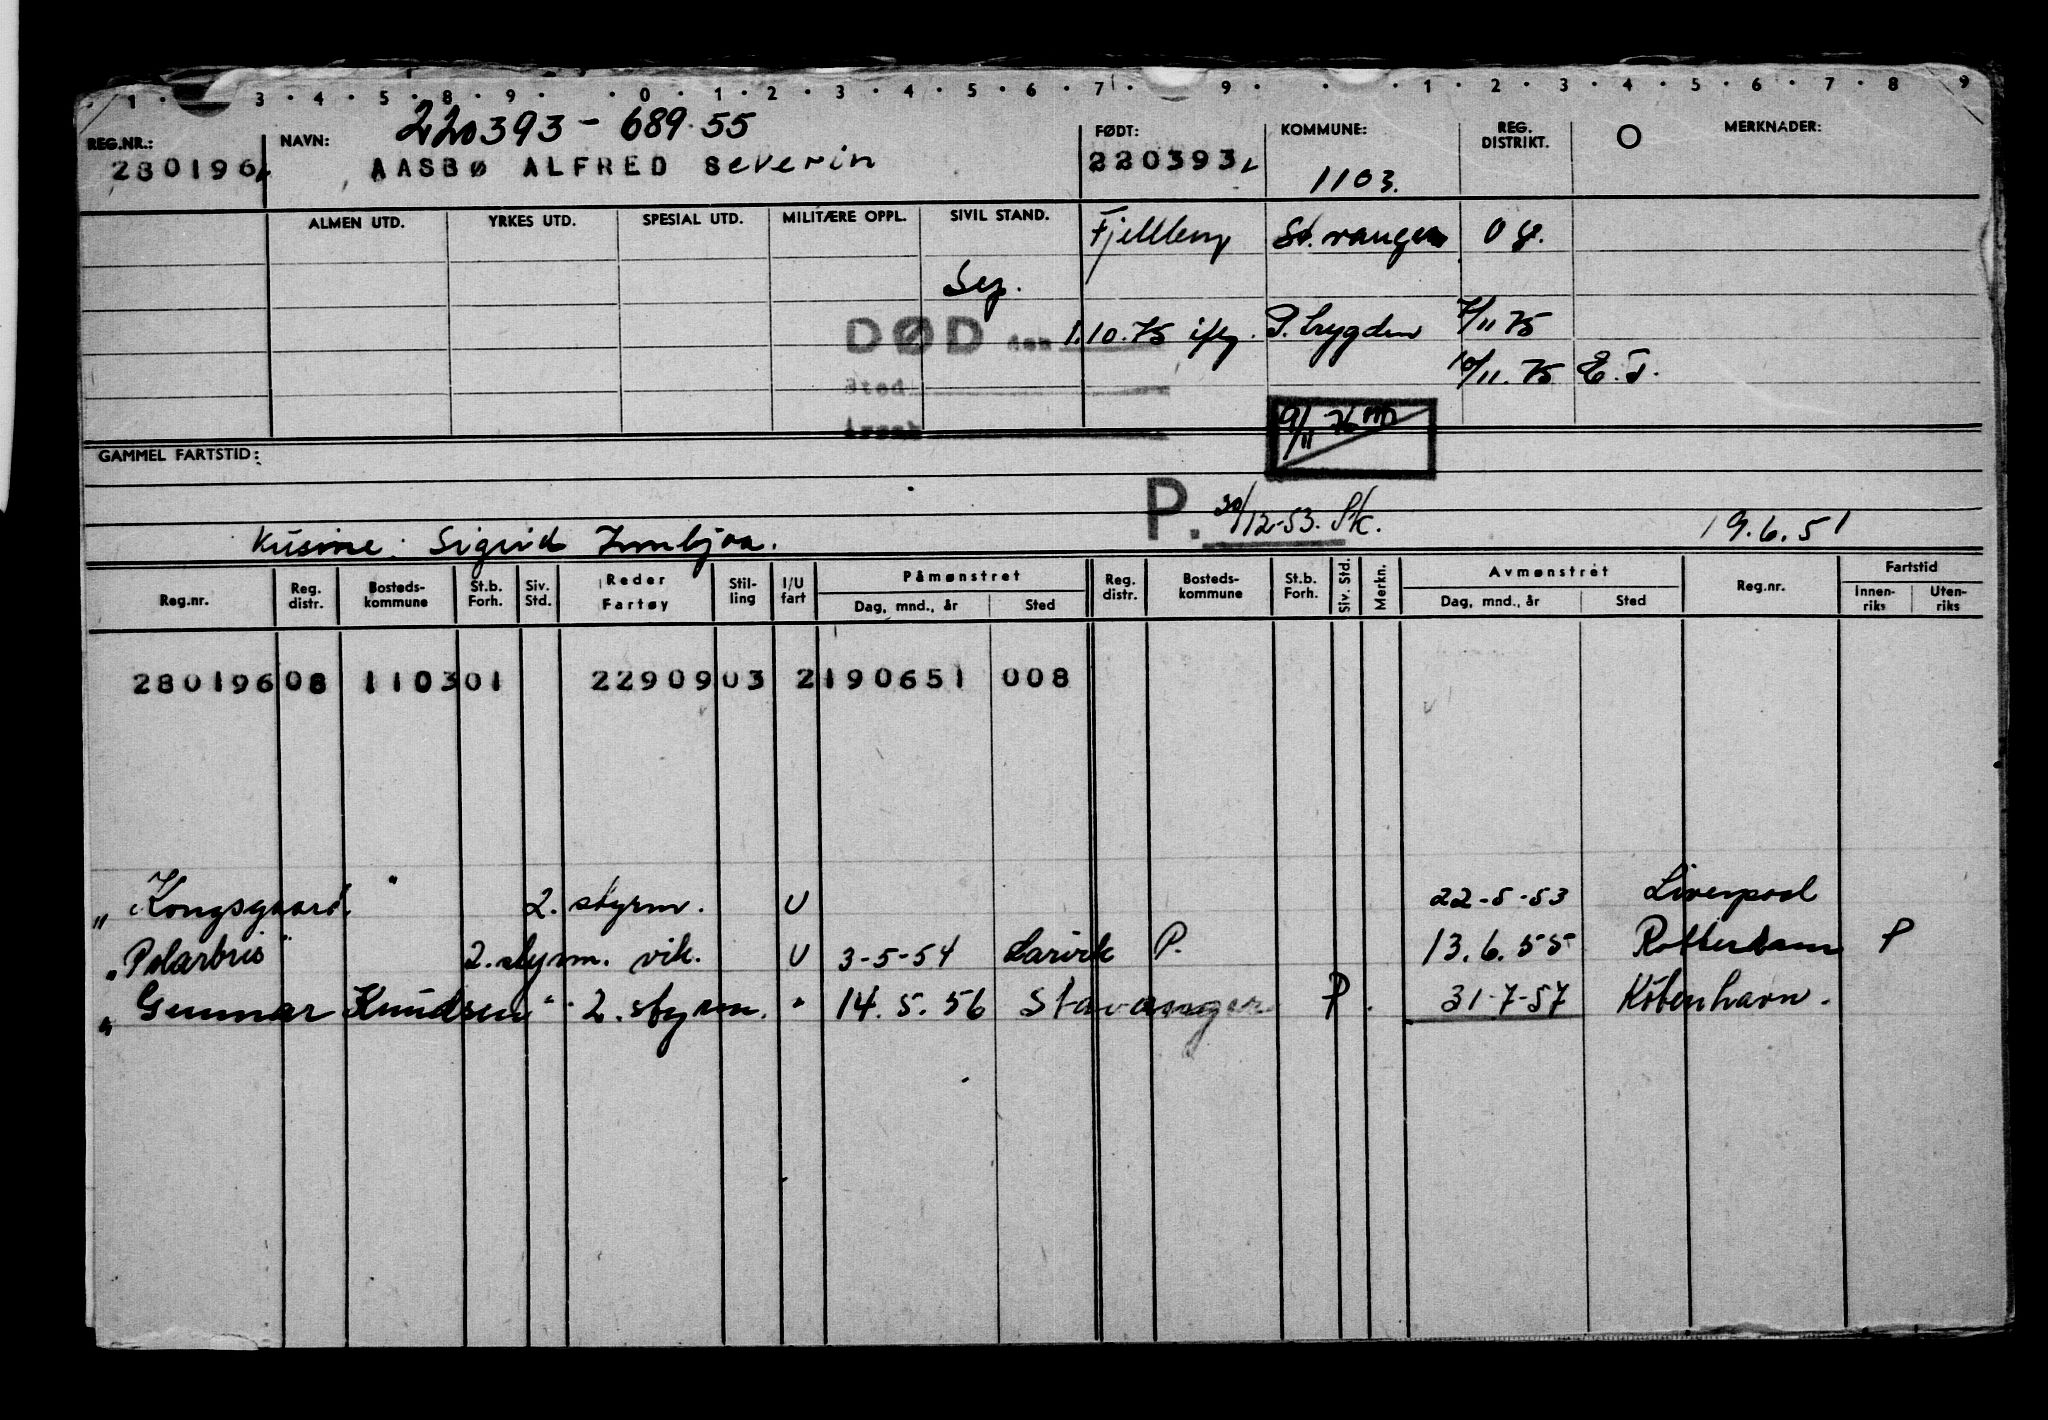 1 · 3 · 4 · 5 · 8 · 9 · · 0 · 1 · 2 · 3 · 4 · 5 · 6 · 7 · 9 · · · 1 · 2 · 3 · 4 · 5 · 6 · 7 · 8 · 9
220393 - 689.55
REG.NR.: NAVN: FØDT: KOMMUNE: REG. DISTRIKT. O MERKNADER:
280196 AASBØ ALFRED Severin 220393 1103.
ALMEN UTD. YRKES UTD. SPESIAL UTD. MILITÆRE OPPL. SIVIL STAND. Fjellberg St.vanger
DØD den 1.10.75 iflg. P.trygden 7/11 75
Sted 10/11.75 E.T.
Årsak 9/11 76
GAMMEL FARTSTID:
P. 30/12-53. 19.6.51
Kusine: Sigrid
Reg.nr. Reg. distr. Bosteds- kommune St.b. Forh. Siv. Std. Reder Fartøy Stil- ling I/U fart Påmønstret Dag, mnd., år Sted Reg. distr. Bosteds- kommune St.b. Forh. Siv. Std. Merkn. Avmønstret Dag, mnd., år Sted Reg.nr. Fartstid Innen- riks Uten- riks
280196 08 1103 01 22909 03 2 190651 008
" Kongsgaard " 2. styrm. U 22-5-53 Liverpool
" Polarbris " 2. styrm. vik. U 3-5-54 Larvik P. 13.6.55 Rotterdam P
" Gunnar Knudsen " 2. styrm. " 14.5.56 Stavanger P. 31-7-57 København.